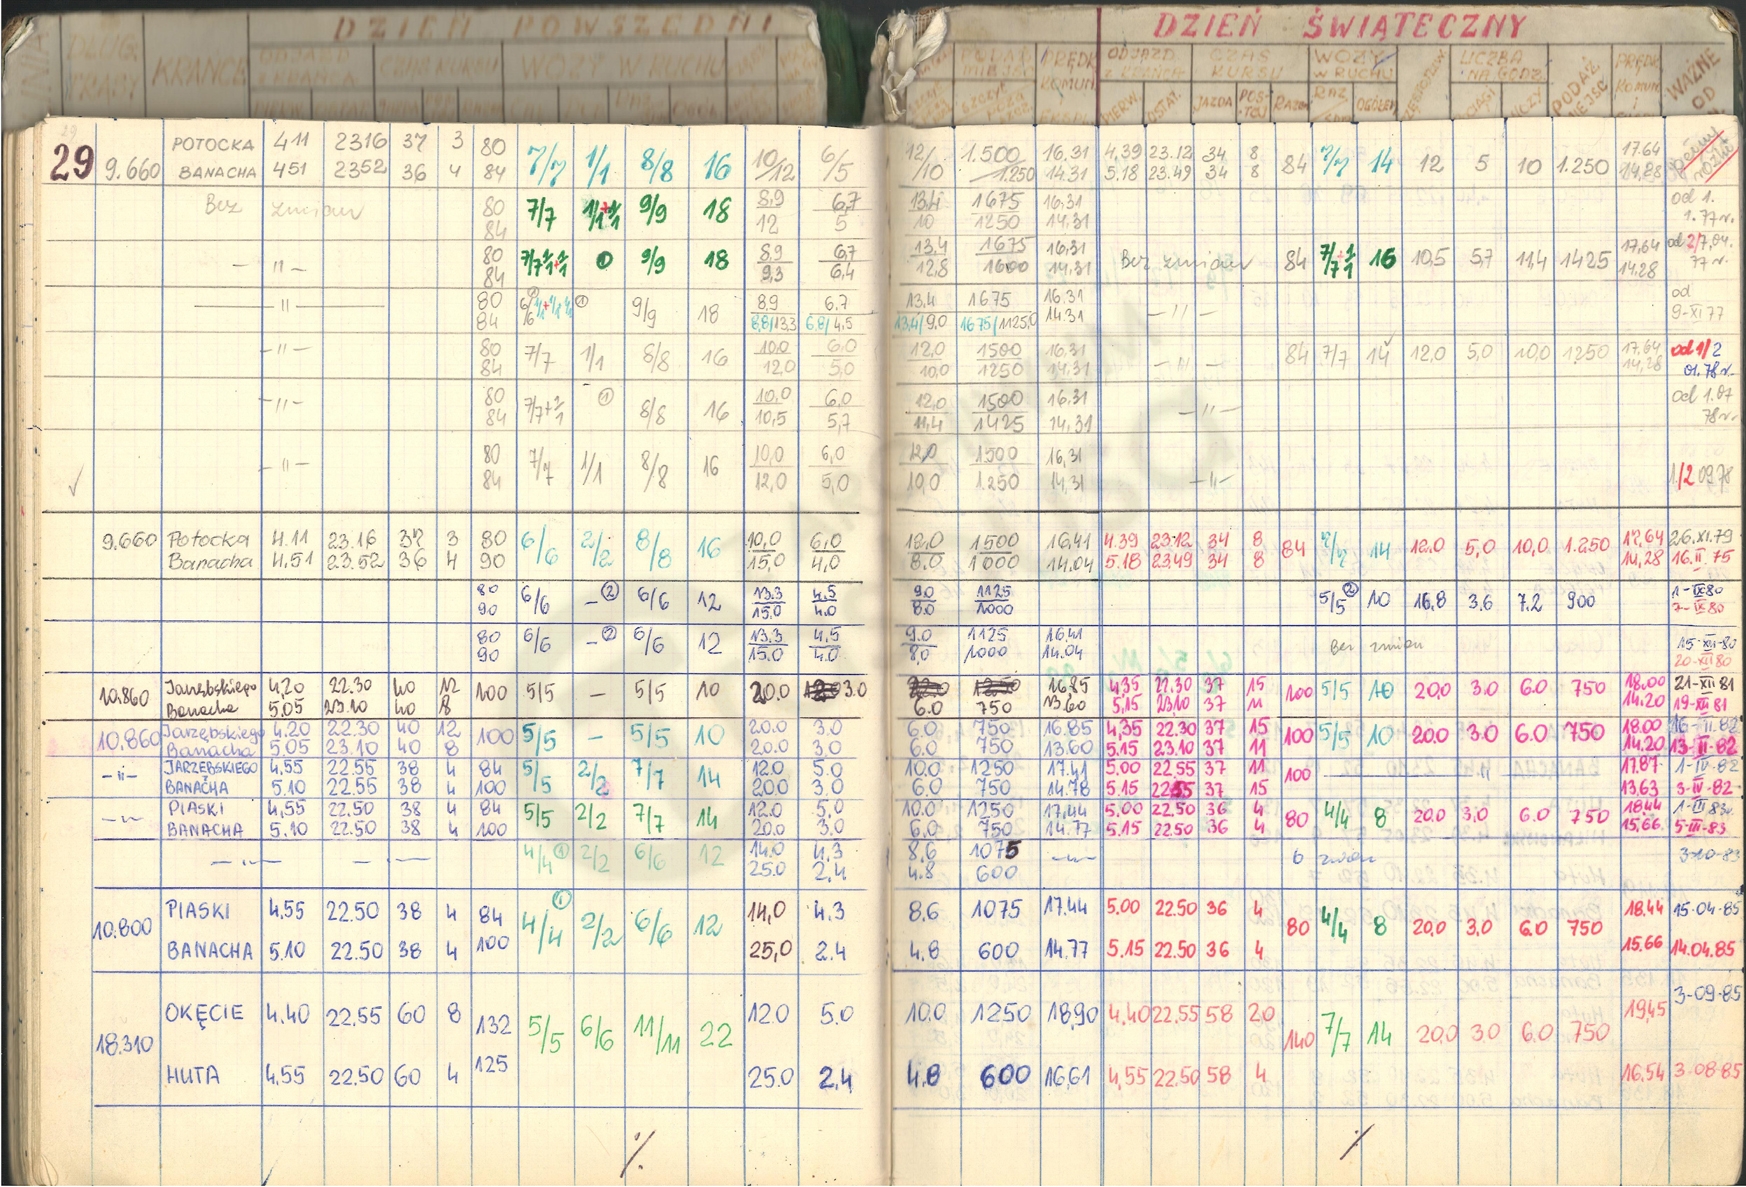 DZIEŃ POWSZEDNI DZIEŃ ŚWIĄTECZNY
DŁUG. TRASY KRAŃCE ODJAZD Z KRAŃCA CZAS KURSU WOZY W RUCHU PRĘDK. KOMUN. ODJAZD Z KRAŃCA CZAS KURSU WOZY W RUCHU LICZBA NA GODZ. PODAŻ MIEJSC PRĘDK. KOMUN. WAŻNE OD
PIERW. OSTAT. JAZDA POSTÓJ RAZEM OGÓŁEM
29 9.660 POTOCKA 411 2316 37 3 80 7/7 1/1 8/8 16 10/12 6/5 12/10 1.500 16.31 4.39 23.12 34 8 84 7/7 14 12 5 10 1.250 17.64
BANACHA 451 2352 36 4 84 1.250 14.31 5.18 23.49 34 8 14.28
Bez zmian 80 7/7 9/9 18 8,9 6,7 13,4 1675 16.31 od 1.
84 12 5 10 1250 14.31 1.77r.
— 〃 — 80 9/9 18 8.9 6,7 13,4 1675 16,31 Bez zmian 84 16 10,5 5,7 11,4 1425 17,64 od 2/7.04.
84 9.3 6,4 12,8 1600 14.31 14.28 77r.
— 〃 — 80 9/9 18 8,9 6.7 13,4 1675 16.31 — 〃 — od
84 8,8/13,3 6.8/4,5 13,4/9,0 1675/1125,0 14.31 9-XI 77
— 〃 — 80 7/7 1/1 8/8 16 10.0 6,0 12,0 1500 16.31 — 〃 — 84 7/7 14 12,0 5,0 10,0 1250 17,64 od 1/2
84 12.0 5,0 10,0 1250 14.31 14,28 01.78r.
— 〃 — 80 8/8 16 10,0 6,0 12,0 1500 16.31 — 〃 — od 1.07
84 10,5 5,7 11,4 1425 14.31 78r.
— 〃 — 80 7/7 1/1 8/8 16 10,0 6,0 12,0 1500 16,31 — 〃 — 1/2 09.78
84 12,0 5,0 10,0 1250 14,31
9.660 Potocka 4.11 23.16 37 3 80 6/6 2/2 8/8 16 10,0 6,0 1500 16,41 4.39 23.12 34 8 84 7/7 14 12.0 5,0 10,0 1.250 17,64 26.XI.79
Banacha 4.51 23.52 36 4 90 15,0 4,0 8.0 1000 14.04 5.18 23.49 34 8 14,28 16.II.75
80 6/6 – ② 6/6 12 13.3 4.5 9.0 1125 5/5 ② 10 16,8 3.6 7.2 900 1-IX 80
90 15.0 4.0 8.0 1000 7-IX 80
80 6/6 – ② 6/6 12 13.3 4,5 9.0 1125 16.41 Bez zmian 15-XII-80
90 15.0 4.0 8,0 1000 14.04 20-XII 80
10.860 Jarzębskiego 4,20 22.30 40 12 100 5/5 – 5/5 10 20.0 3.0 16.85 4,35 22.30 37 15 100 5/5 10 20,0 3.0 6.0 750 18,00 21-XII 81
Banacha 5,05 23.10 40 8 6.0 750 13.60 5,15 23.10 37 11 14.20 19-XII 81
10.860 Jarzębskiego 4.20 22.30 40 12 100 5/5 – 5/5 10 20.0 3.0 6.0 750 16.85 4,35 22.30 37 15 100 5/5 10 20.0 3.0 6.0 750 18.00 16-II-82
Banacha 5.05 23.10 40 8 20.0 3.0 6.0 750 13.60 5.15 23.10 37 11 14.20 13-II-82
— 〃 — JARZĘBSKIEGO 4,55 22.55 38 4 84 5/5 2/2 7/7 14 12.0 5.0 10.0 1250 17.41 5.00 22,55 37 11 100 〃 17.87 1-IV-82
BANACHA 5.10 22.55 38 4 100 20.0 3.0 6.0 750 14.78 5.15 22.55 37 15 13,63 3-IV-82
— 〃 — PIASKI 4,55 22.50 38 4 84 5/5 2/2 7/7 14 12.0 5,0 10.0 1250 17,44 5.00 22.50 36 4 80 4/4 8 20,0 3,0 6.0 750 18.44 1-III-83
BANACHA 5.10 22.50 38 4 100 20.0 3.0 6.0 750 14.77 5.15 22.50 36 4 15,66 5-III-83
— 〃 — 4/4 ① 2/2 6/6 12 14.0 4,3 8,6 1075 — 〃 — b zmian 3-10-83
25.0 2,4 4.8 600
10.800 PIASKI 4,55 22.50 38 4 84 4/4 ① 2/2 6/6 12 14,0 4.3 8.6 1075 17.44 5.00 22.50 36 4 80 4/4 8 20,0 3,0 6.0 750 18.44 15-04-85
BANACHA 5.10 22.50 38 4 100 25,0 2.4 4.8 600 14.77 5.15 22.50 36 4 15.66 14.04.85
18.310 OKĘCIE 4.40 22.55 60 8 132 5/5 6/6 11/11 22 12.0 5.0 10.0 1250 18,90 4,40 22.55 58 20 140 7/7 14 20,0 3.0 6.0 750 19,45 3-09-85
HUTA 4,55 22.50 60 4 125 25.0 2,4 4.8 600 16,61 4,55 22.50 58 4 16,54 3-08-85